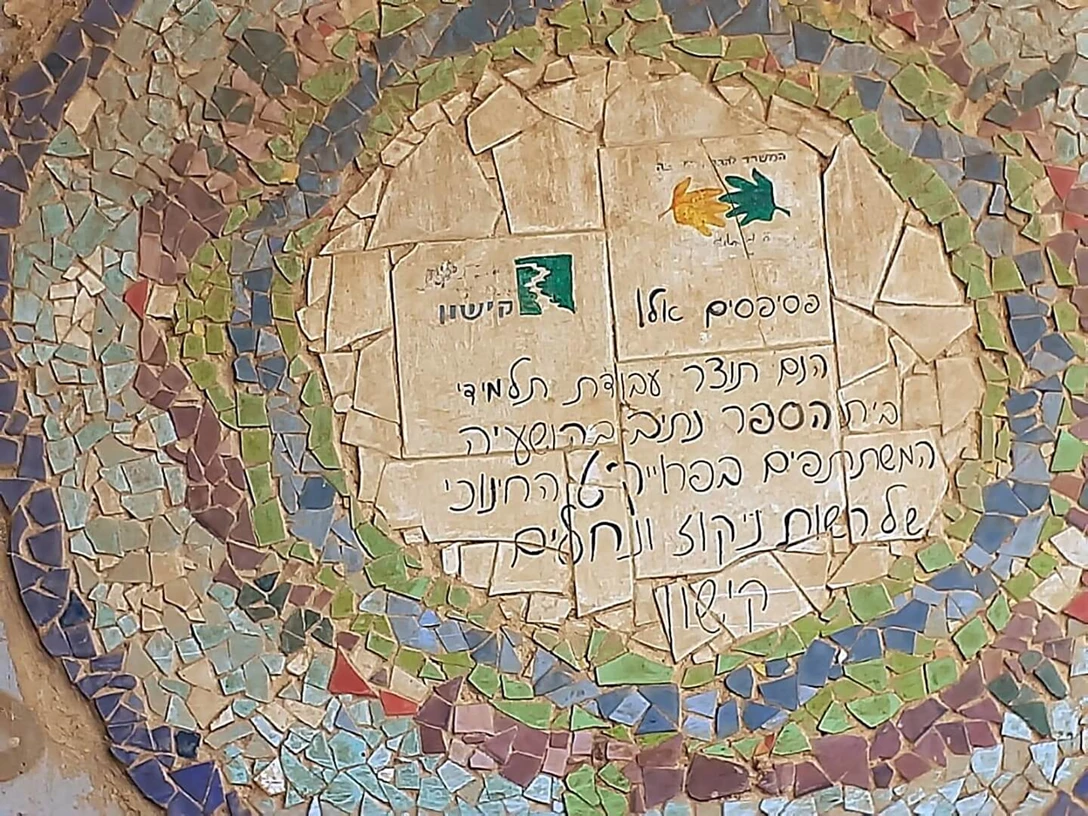 המשרד
קישון
פסיפסים אלו
הנם תוצר עבודת תלמידי
בית הספר נתיב בהושעיה
המשתתפים בפרוייקט החינוכי
של רשות ניקוז ונחלים
קישון